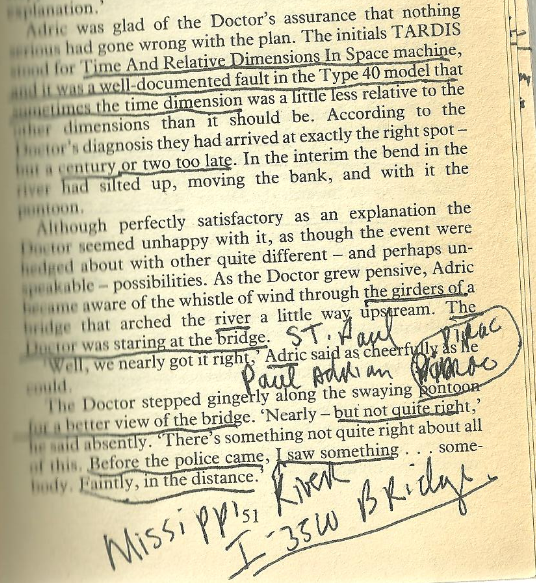 explanation.'
Adric was glad of the Doctor's assurance that nothing
serious had gone wrong with the plan. The initials TARDIS
stood for Time And Relative Dimensions In Space machine,
and it was a well-documented fault in the Type 40 model that
sometimes the time dimension was a little less relative to the
other dimensions than it should be. According to the
Doctor's diagnosis they had arrived at exactly the right spot –
but a century or two too late. In the interim the bend in the
river had silted up, moving the bank, and with it the
pontoon.
Although perfectly satisfactory as an explanation the
Doctor seemed unhappy with it, as though the event were
hedged about with other quite different – and perhaps un-
speakable – possibilities. As the Doctor grew pensive, Adric
became aware of the whistle of wind through the girders of a
bridge that arched the river a little way upstream. The
Doctor was staring at the bridge. ST. Paul
'Well, we nearly got it right,' Adric said as cheerfully as he
could. Paul Adrian
The Doctor stepped gingerly along the swaying pontoon
for a better view of the bridge. 'Nearly – but not quite right,'
he said absently. 'There's something not quite right about all
of this. Before the police came, I saw something . . . some-
body. Faintly, in the distance.'
Missippi River
51
I-35W Bridge